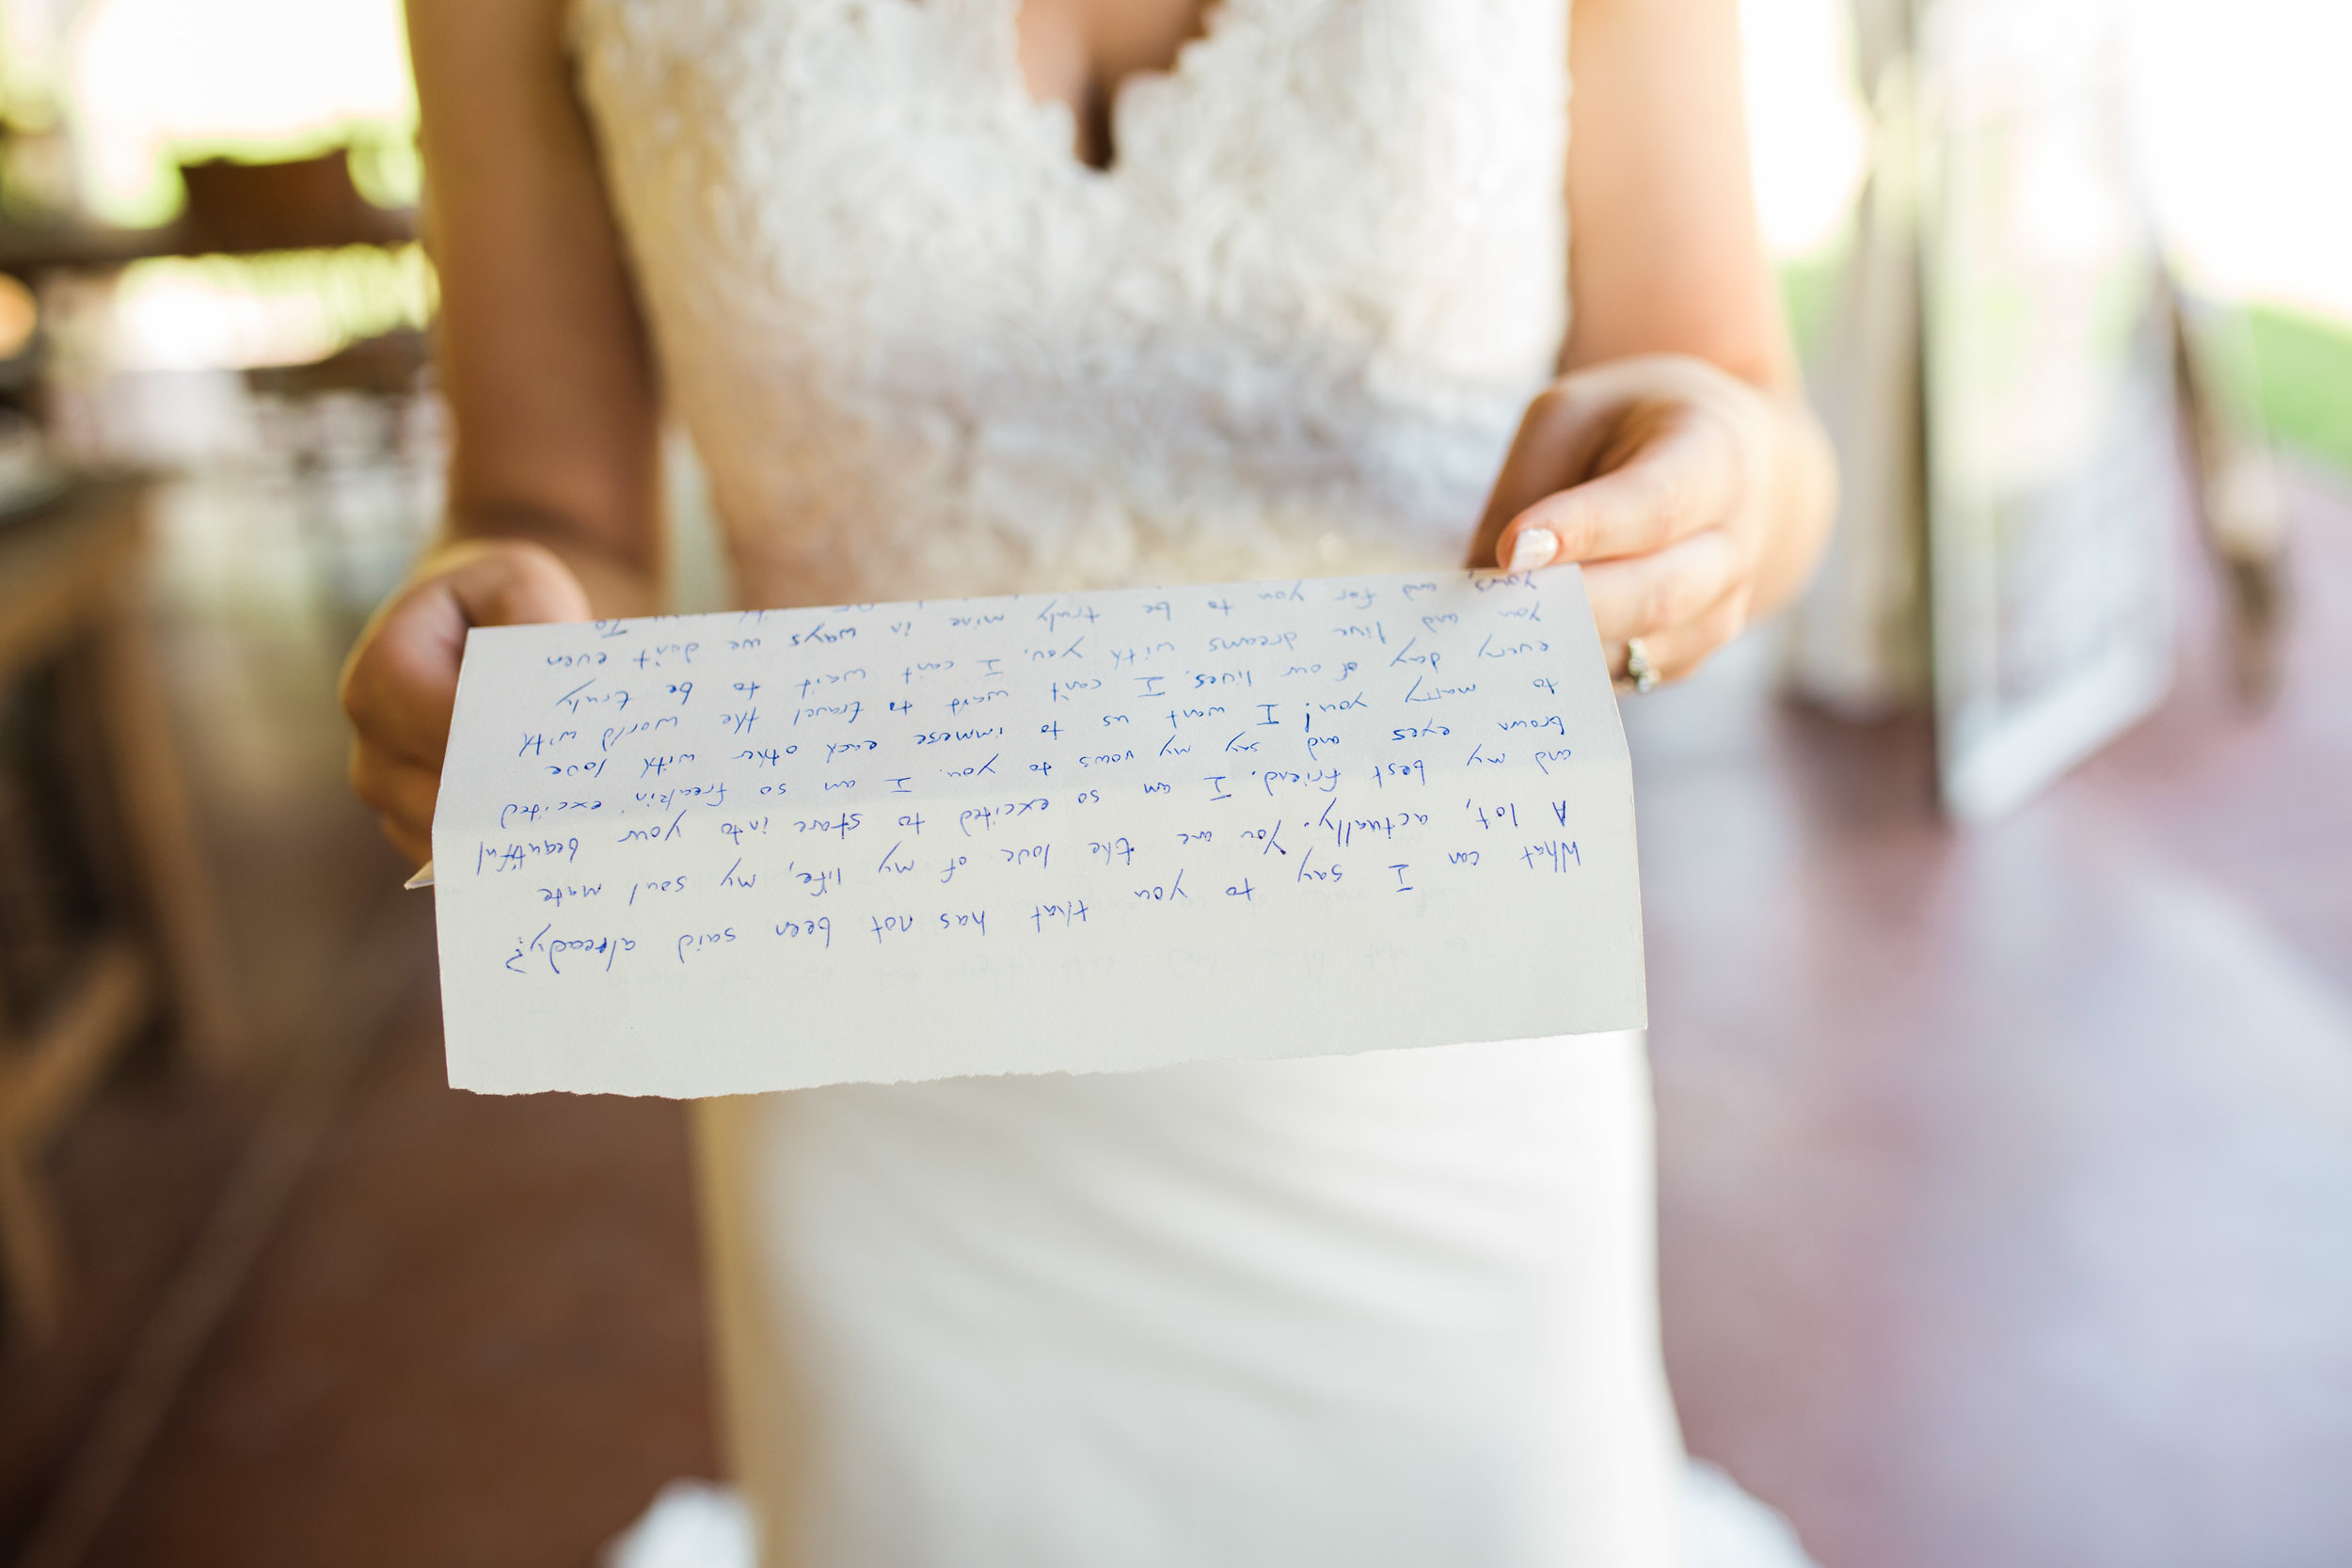 What can I say to you that has not been said already?
A lot, actually. You are the love of my life, my soul mate
and my best friend. I am so excited to stare into your beautiful
brown eyes and say my vows to you. I am so freakin' excited
to marry you! I want us to immerse each other with love
every day of our lives. I can't want to travel the world with
you and live dreams with you. I can't wait to be truly
yours, and for you to be truly mine in ways we don't even
To